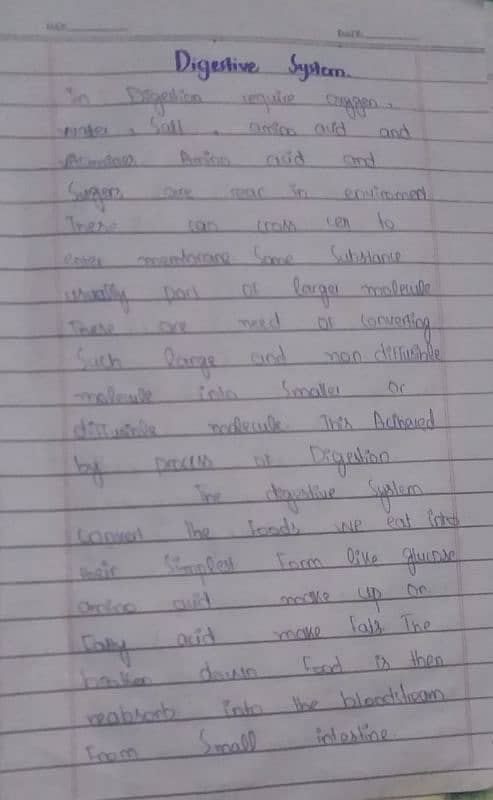 DATE
Digestive System.
in Digestion require oxygen,
water, Salt, amino acid and
Amino acid and
are rear in enviroment
These can cross cell to
enter membrane Some Substance
usually part of larger molecule
These are need of converting
Such large and non diffusible
molecule into Smaller or
diffusible molecule This Achieved
by process of Digestion
The digestive System
convert the foods we eat into
their Simplest Form like glucose
amino acid make up or
Fatty acid make Fats The
down Food is then
reabsorb into the bloodstream
From Small intestine.